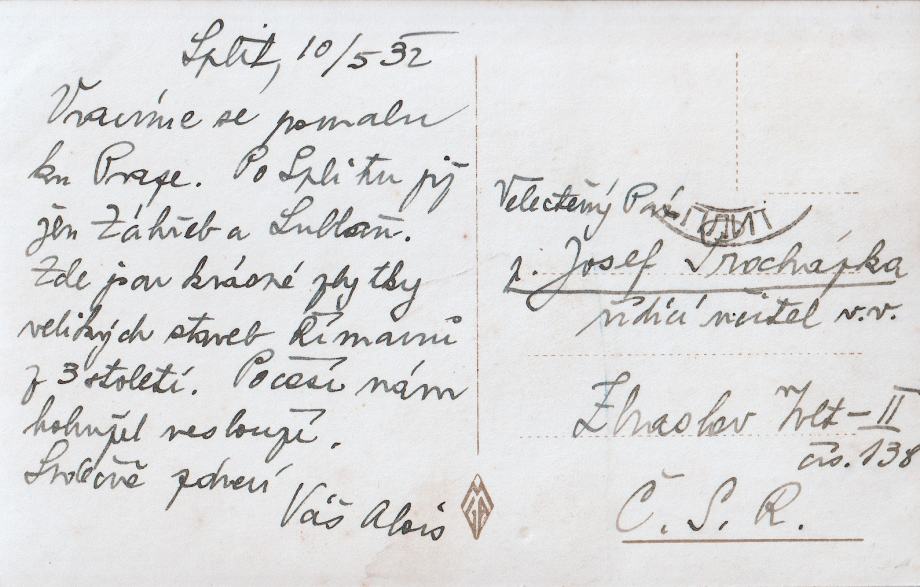 Split, 10/5 32
Vracíme se pomalu
ku Praze. Po Splitu již
jen Záhřeb a Lublaň.
Zde jsou krásné zbytky
velikých staveb Římanů
z 3 století. Počasí nám
bohužel neslouží.
Srdečně zdraví
Váš Alois
Velectěný Pán
p. Josef Procházka
řídící učitel v.v.
Zbraslav Vlt-II
čís. 138
Č. S. R.